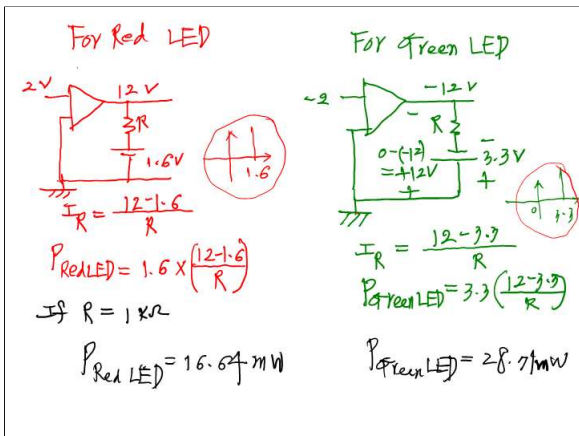 For Red LED
2V
12 V
R
1.6V
1.6
I_R = 12-1.6 / R
P_RedLED = 1.6 × (12-1.6 / R)
If R = 1 kΩ
P_Red LED = 16.64 mW
For Green LED
-2
-12V
-
R
0-(-12)
=+12V
+
-
3.3V
+
0
3.3
I_R = 12-3.3 / R
P_Green LED = 3.3 (12-3.3 / R)
P_Green LED = 28.71mW